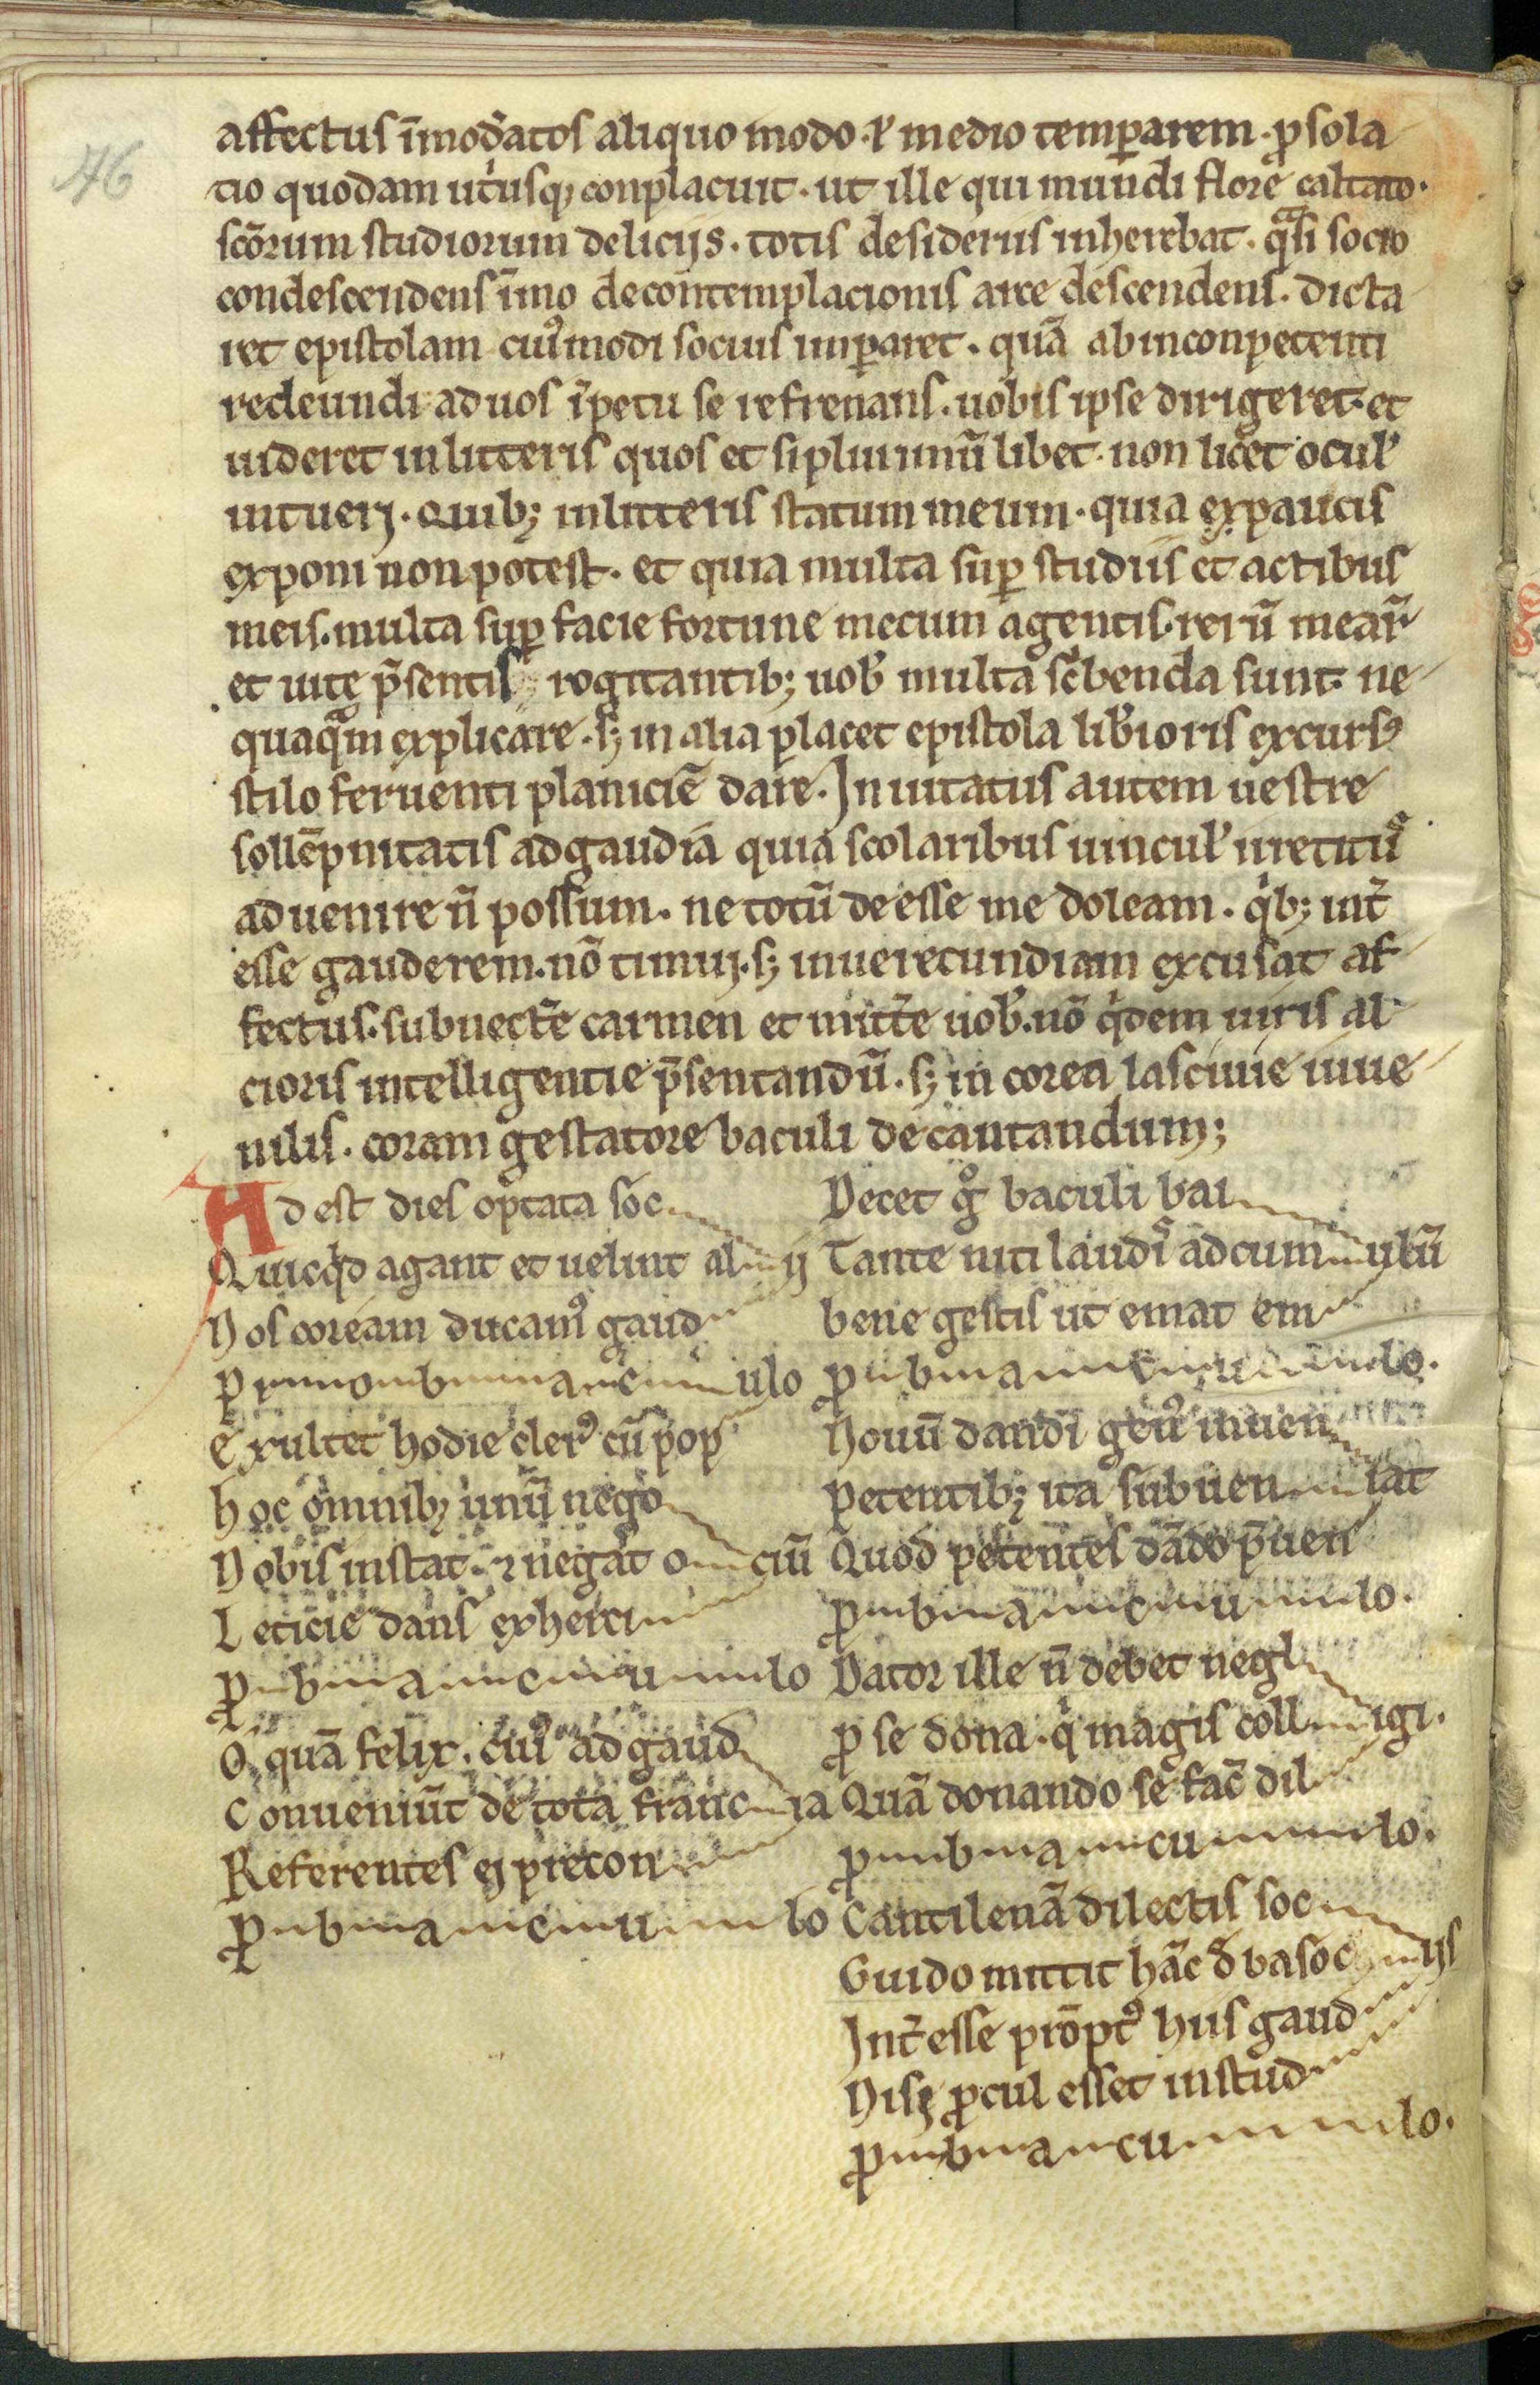 46
affectus īmod̄atos aliquo modo ⁊ medio temꝑarem. ꝓ sola
tio quodam ut̾usqꝫ conplacuit. ut ille qui mundi flore caltato.
sc̄orum studiorum delicijs. totis desideriis inherebat. qͣsi socio
condescendens īmo de contemplacionis arce descendens. dicta
ret epistolam cuiꝰmodi socius imꝑaret. quā ab inconpetenti
redeundi ad uos īpetu se refrenans. uobis ipse dirigeret. et
uideret in litteris quos et si plurimū libet. non licet ocul̕
intuerj. Quibꝫ in litteris statum meum. quia ex paucis
exponi non potest. et quia multa suꝑ studiis et actibus
meis. multa suꝑ facie fortune mecum agentis. rerū mear̄
et uitę p̄sentis rogitantibꝫ uob̕ multa sc̕benda sunt. ne
quaqͣm explicare. sꝫ in alia placet epistola lib̕ioris excursꝰ
stilo feruenti planiciē dare. Inuitatus autem uestre
sollēpnitatis ad gaudia quia scolaribus uincul̕ irretitꝰ
aduenire n̄ possum. ne totū deesse me doleam. qͥbꝫ int̄
esse gauderem. nō timuj. sꝫ inuerecundiam excusat af
fectus. subnect̄e carmen et mitt̄e uob̕. nō qͥdem uiris al
cioris intelligentie p̄sentandū. sꝫ in corea lasciuie iuue
nilis. coram gestatore baculi decantandum;
Adest dies optata soc
Quicqͥd agant et uelint al ij
Nos coream ducamꝰ gaud
ꝓ n b a c ulo
Exultet hodie clerꝰ cū pop
Hoc omnibꝫ unū nego
Nobis instat. ⁊ negat o ciū
Leticie dans exherci
ꝓ b a c u lo
O quā felix. cuiꝰ ad gaud
Conueniūt de tota franc ia
Referentes ej precon
ꝓ b a c u lo
Decet gͦ baculi bai
Tante niti laudis ad cum ulū
bene gestis ut emat em
ꝓ b a c u lo.
Nouū dandi genꝰ inuen
petentibꝫ ita subuen iat
Quod petentes dādo p̄uen
ꝓ b a c u lo.
Dator ille n̄ debet negl
ꝓ se dona. qͥ magis coll igi.
Quā donando se fac̄ dil
ꝓ b a cu lo.
Cantilenā dilectis soc
Guido mittit hāc d̄ basoc ijs
Int̄esse prōptꝰ hiis gaud
Nisi ꝓcul esset in stud
ꝓ b a cu lo.